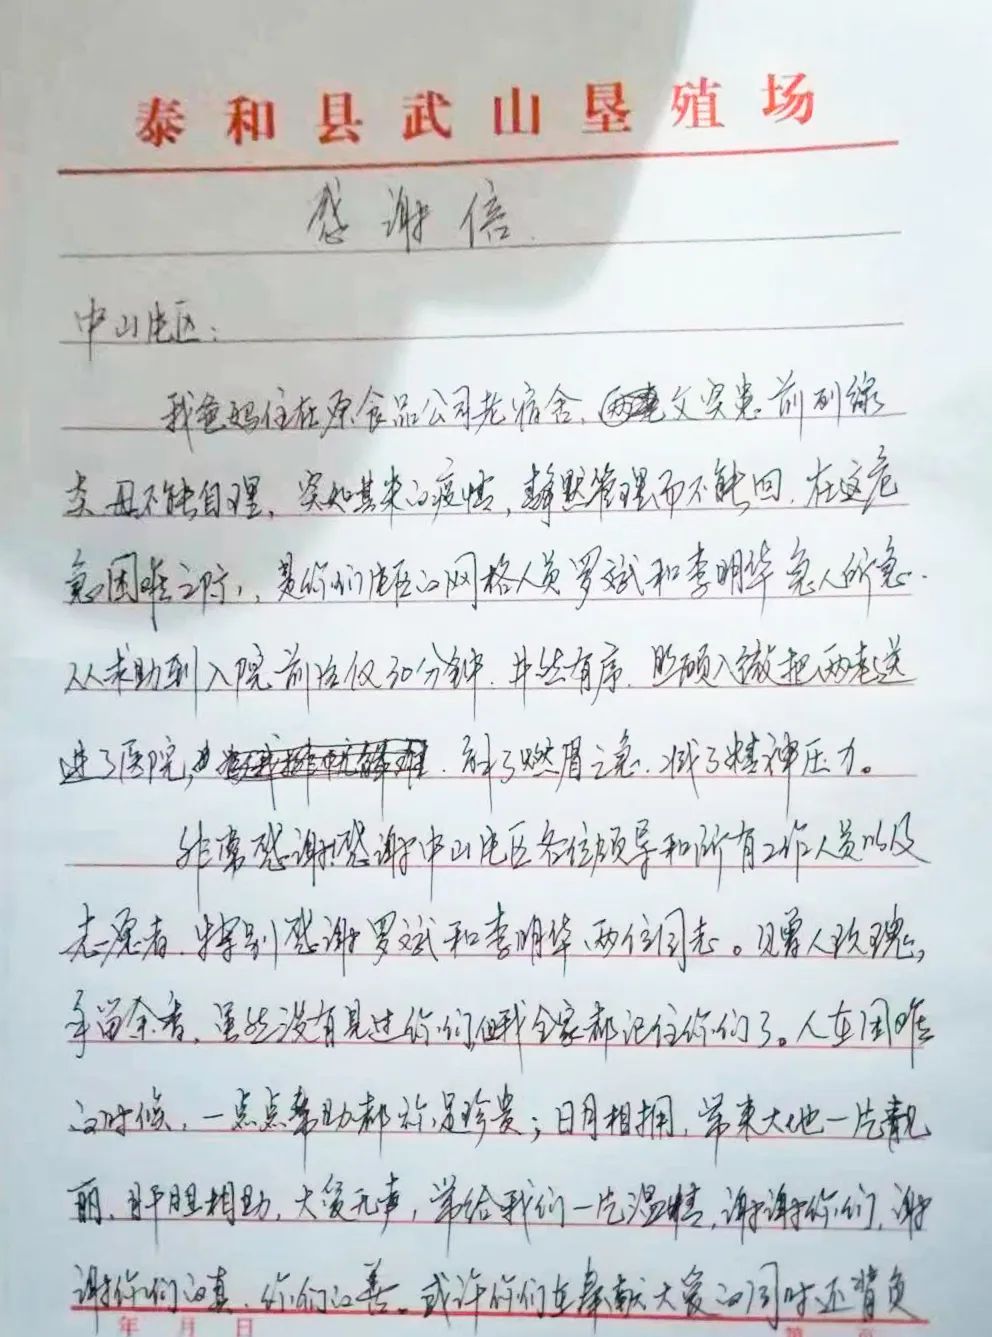 泰和县武山垦殖场
感谢信
中山社区：
我爸妈住在原食品公司老宿舍，父突患前列线
炎，母不能自理，突如其来的疫情，静默管理而不能回，在这危
急困难之际，是你们社区的网格人员罗斌和李明华急人所急，
从求助到入院前后仅30分钟，井然有序，照顾入微把两老送
进了医院，解了燃眉之急，减了精神压力。
非常感谢！感谢中山社区各位领导和所有工作人员以及
志愿者，特别感谢罗斌和李明华两位同志。赠人玫瑰，
手留余香，虽然没有见过你们但我全家都记住你们了。人在困难
的时候，一点点帮助都弥足珍贵；日月相拥，带来大地一片靓
丽，肝胆相助，大爱无声，带给我们一片温情，谢谢你们，谢
谢你们的真，你们的善。或许你们在奉献大爱的同时还背负
年 月 日